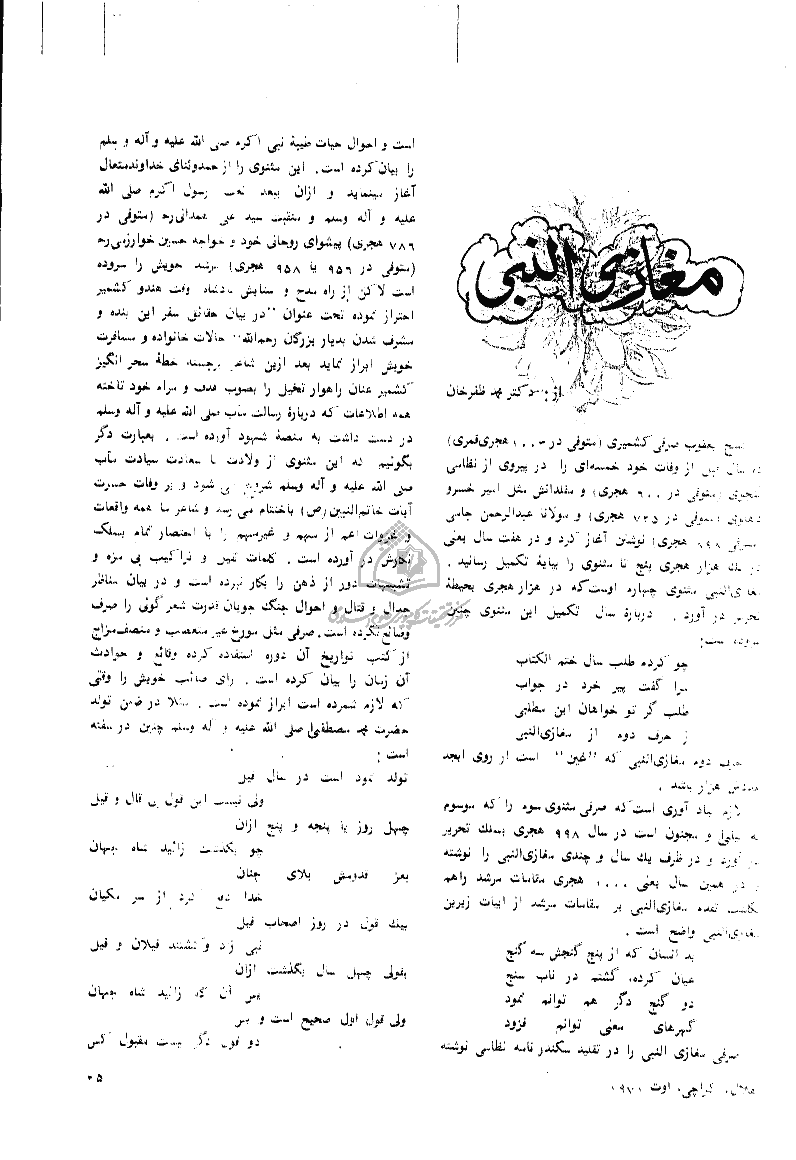 مغازی النبی
از: دکتر محمد ظفرخان
شیخ یعقوب صرفی کشمیری (متوفی در ۱۰۰۳ هجری‌قمری)
سال قبل از وفات خود خمسه‌ای را در پیروی از نظامی
گنجوی (متوفی در ۶۰۰ هجری) و مقلدانش مثل امیر خسرو
دهلوی (متوفی در ۷۲۵ هجری) و مولانا عبدالرحمن جامی
(متوفی ۸۹۸ هجری) نوشتن آغاز کرد و در هفت سال یعنی
در یک هزار هجری پنج تا مثنوی را بپایهٔ تکمیل رسانید.
مغازی‌النبی مثنوی چهارم اوست که در هزار هجری بحیطهٔ
تحریر در آورد. دربارهٔ سال تکمیل این مثنوی چنین
سروده است:
چو کرده طلب سال ختم الکتاب
مرا گفت پیر خرد در جواب
طلب گر تو خواهان این مطلبی
ز حرف دوم از مغازی‌النبی
حرف دوم مغازی‌النبی که "غین" است از روی ابجد
عددش هزار باشد.
لازم بیاد آوری است که صرفی مثنوی سوم را که موسوم
به لیلی و مجنون است در سال ۹۹۸ هجری بسلک تحریر
در آورد و در ظرف یک سال و چندی مغازی‌النبی را نوشته
و در همین سال یعنی ۱۰۰۰ هجری مقامات مرشد راهم
نگاشت تقدم مغازی‌النبی بر مقامات مرشد از ابیات زیرین
مغازی‌النبی واضح است.
بد انسان که از پنج گنجش سه گنج
عیان کرده، گشتم در ناب سنج
دو گنج دگر هم توانم نمود
گهرهای معنی توانم فزود
صرفی مغازی النبی را در تقلید سکندر نامه نظامی نوشته
است و احوال حیات طیبهٔ نبی اکرم صلی الله علیه و آله و سلم
را بیان کرده است. این مثنوی را از حمدوثنای خداوندمتعال
آغاز مینماید و ازان ببعد نعت رسول اکرم صلی الله
علیه و آله وسلم و منقبت سید علی همدانی‌رح (متوفی در
۷۸۶ هجری) پیشوای روحانی خود و خواجه حسین خوارزمی‌رح
(متوفی در ۹۵۶ یا ۹۵۸ هجری) مرشد خویش را سروده
است لاکن از راه مدح و ستایش پادشاه وقت هندو کشمیر
احتراز نموده تحت عنوان "در بیان حقائق سفر این بنده و
مشرف شدن بدیار بزرگان رحمه‌الله" حالات خانواده و مسافرت
خویش ابراز نماید بعد ازین شاعر برجسته خطهٔ سحر انگیز
کشمیر عنان راهوار تخیل را بصوب هدف و مرام خود تاخته
همه اطلاعات که دربارهٔ رسالت مآب صلی الله علیه و آله وسلم
در دست داشت به منصهٔ شهود آورده است. بعبارت دگر
بگوئیم که این مثنوی از ولادت با سعادت سیادت مآب
صلی الله علیه و آله وسلم شروع می شود و بر وفات حسرت
آیات خاتم‌النبیین (ص) باختتام می رسد و شاعر ما همه واقعات
و غزوات اعم از مهم و غیرمهم را با اختصار تمام بسلک
نگارش در آورده است. کلمات ثقیل و تراکیب بی مزه و
تشبیهات دور از ذهن را بکار نبرده است و در بیان مناظر
جدال و قتال و احوال جنگ جویان قدرت شعر گوئی را صرف
وضائع نکرده است. صرفی مثل مورخ غیر متعصب و منصف‌مزاج
از کتب تواریخ آن دوره استفاده کرده وقائع و حوادث
آن زمان را بیان کرده است. رای صائب خویش را وقتی
که لازم شمرده است ابراز نموده است. مثلا در ضمن تولد
حضرت محمد مصطفیٰ صلی الله علیه و آله وسلم چنین در سفته
است:
تولد نمود است در سال فیل
ولی نیست این قول بی قال و قیل
چهل روز یا پنجه و پنج ازان
چو بگذشت زائید شاه جهان
بعز قدومش بلای چنان
خدا دفع کرد از سر مکیان
بیک قول در روز اصحاب فیل
نبی زاد و گشتند فیلان و فیل
بقولی چهل سال بگذشت ازان
پس آن گه زائید شاه جهان
ولی قول اول صحیح است و بس
دو قول دگر نیست مقبول کس
هلال، کراچی، اوت ۱۹۷۱
۰۵